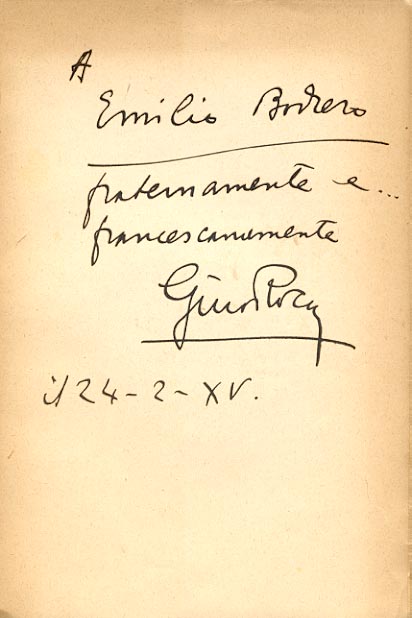 A
Emilio Bodrero
fraternamente e...
francescanamente
Gino Rocca
il 24-2-XV.